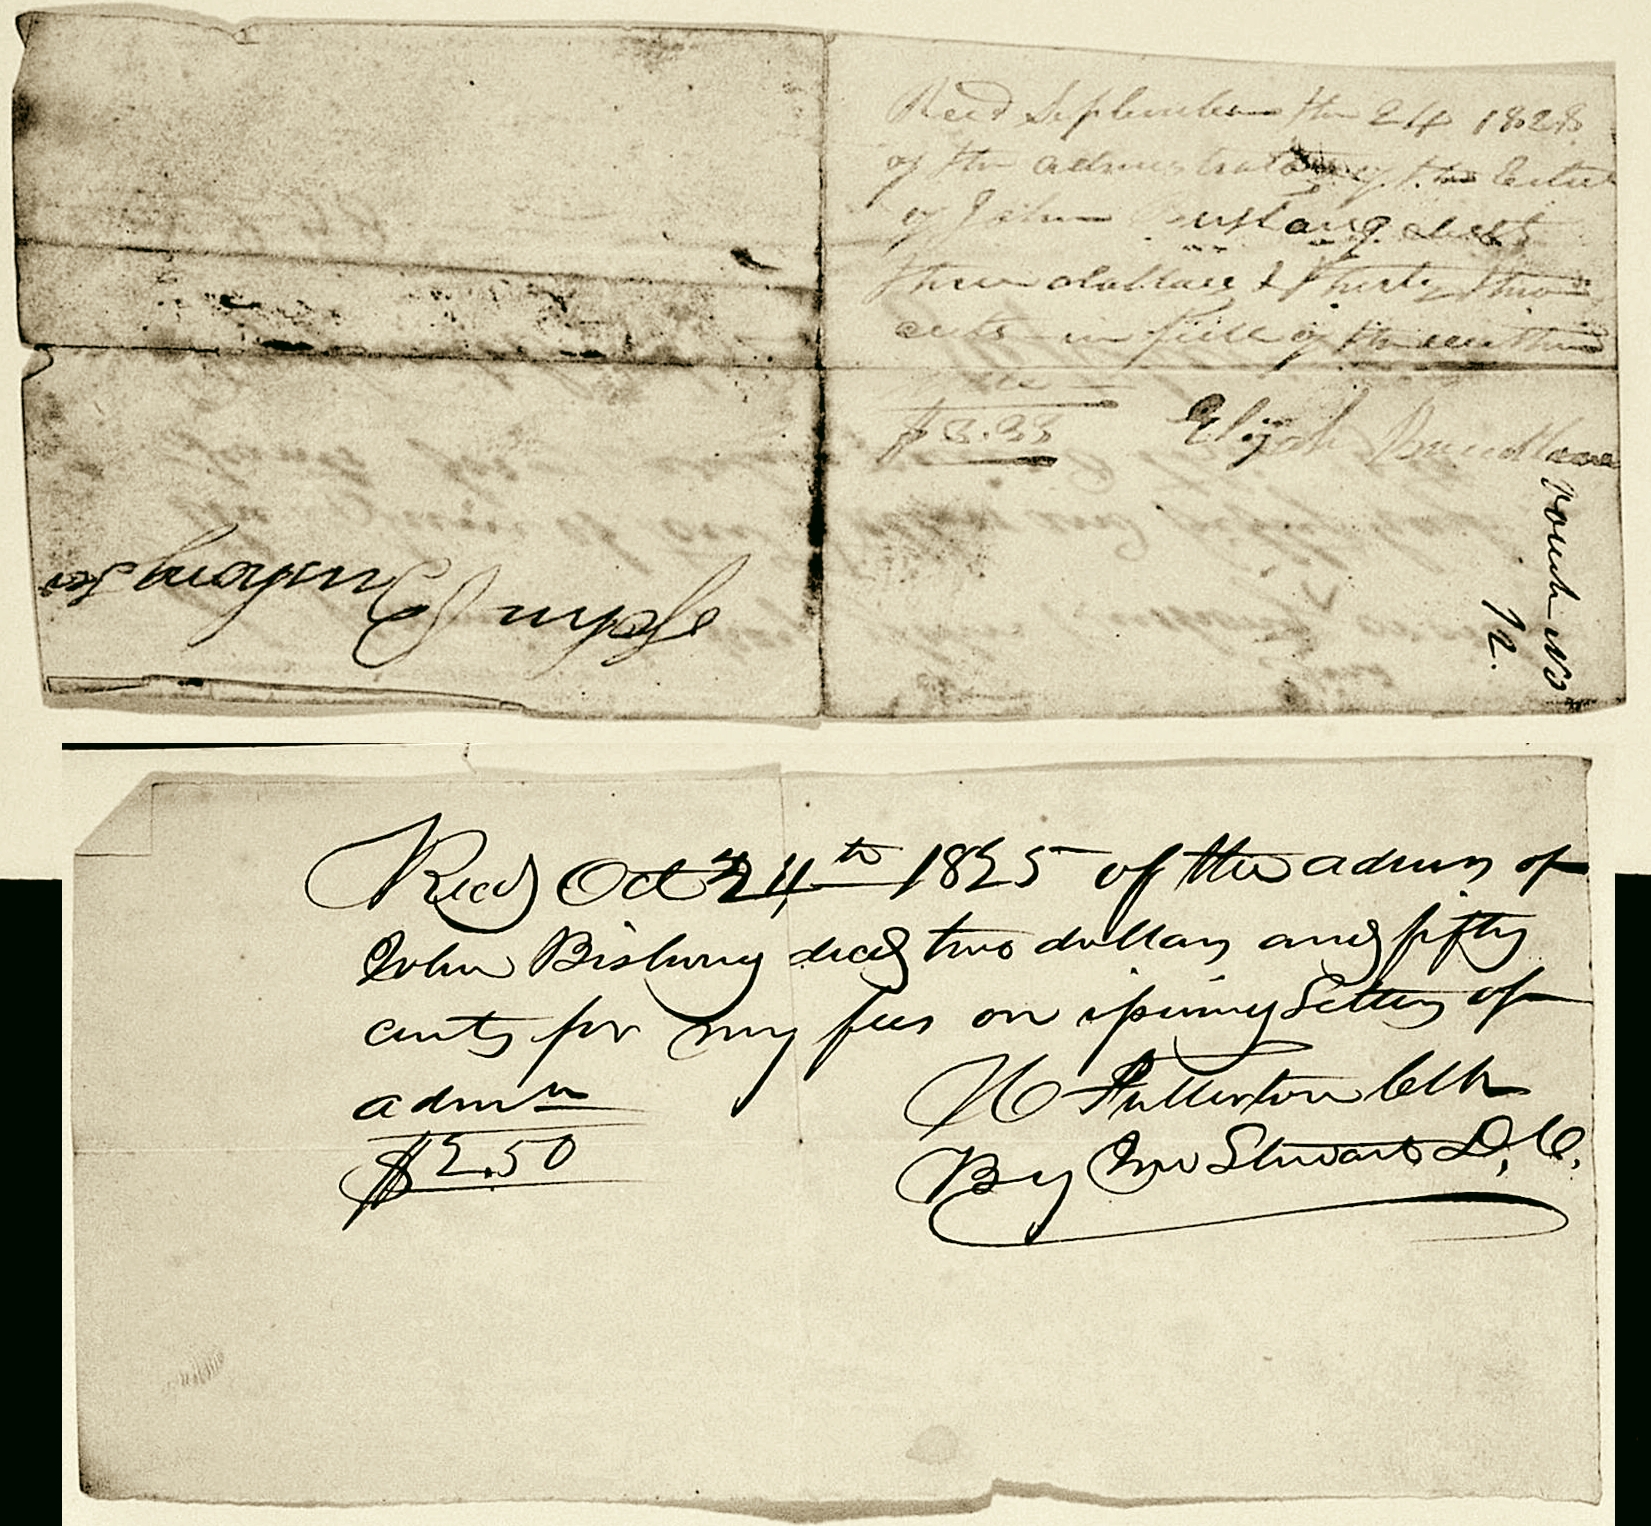 Recd September the 24 1828
of the administrator of the Estate
of John
three dollars & thirty three
cents in full of the within
$3.33 Elijah
Vouch No
12.
John
Recd Oct 24th 1825 of the admrs of
John Bishong decd two dollars and fifty
cents for my fees on issuing Letters of
admn
$2.50
H Fullerton Clk
By Jno Stewart D.C.